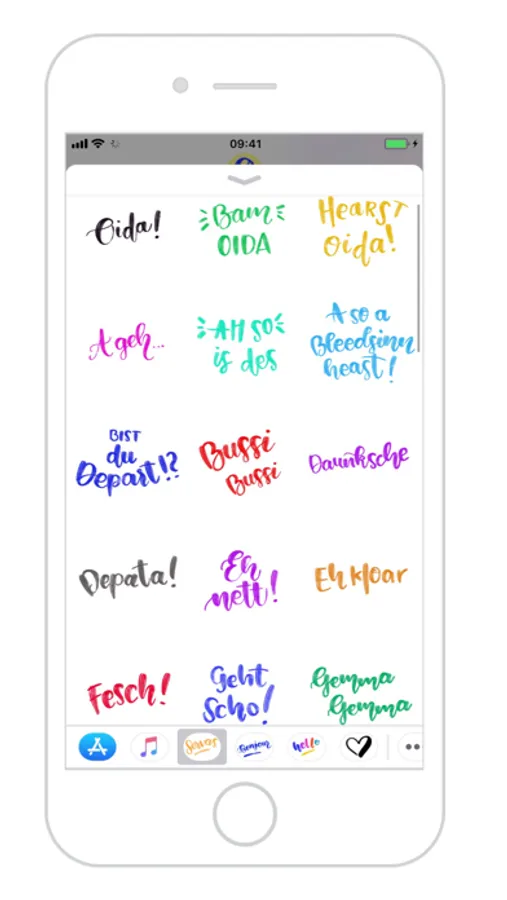 09:41
Oida!
Bam
OIDA
HEARST
oida!
A geh...
AH SO
is des
A so a
Bleedsinn
heast!
BIST
du
Depart!?
Bussi
Bussi
Daunksche
Depata!
Eh
nett!
Eh kloar
Fesch!
Geht
Scho!
Gemma
Gemma
Servas
Bonjour
hello